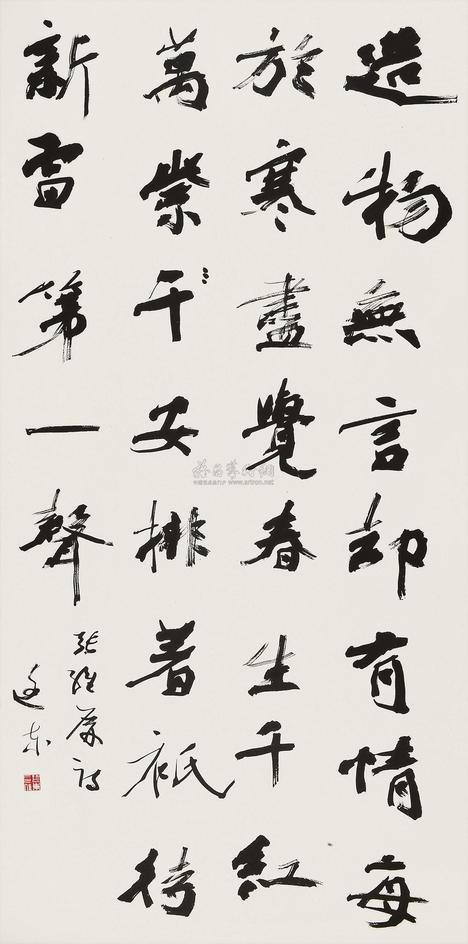 造物無言却有情每
於寒盡覺春生千紅
萬紫千安排着祇待
新雷第一聲
張維屏詩
雅昌藝術網
www.artron.net